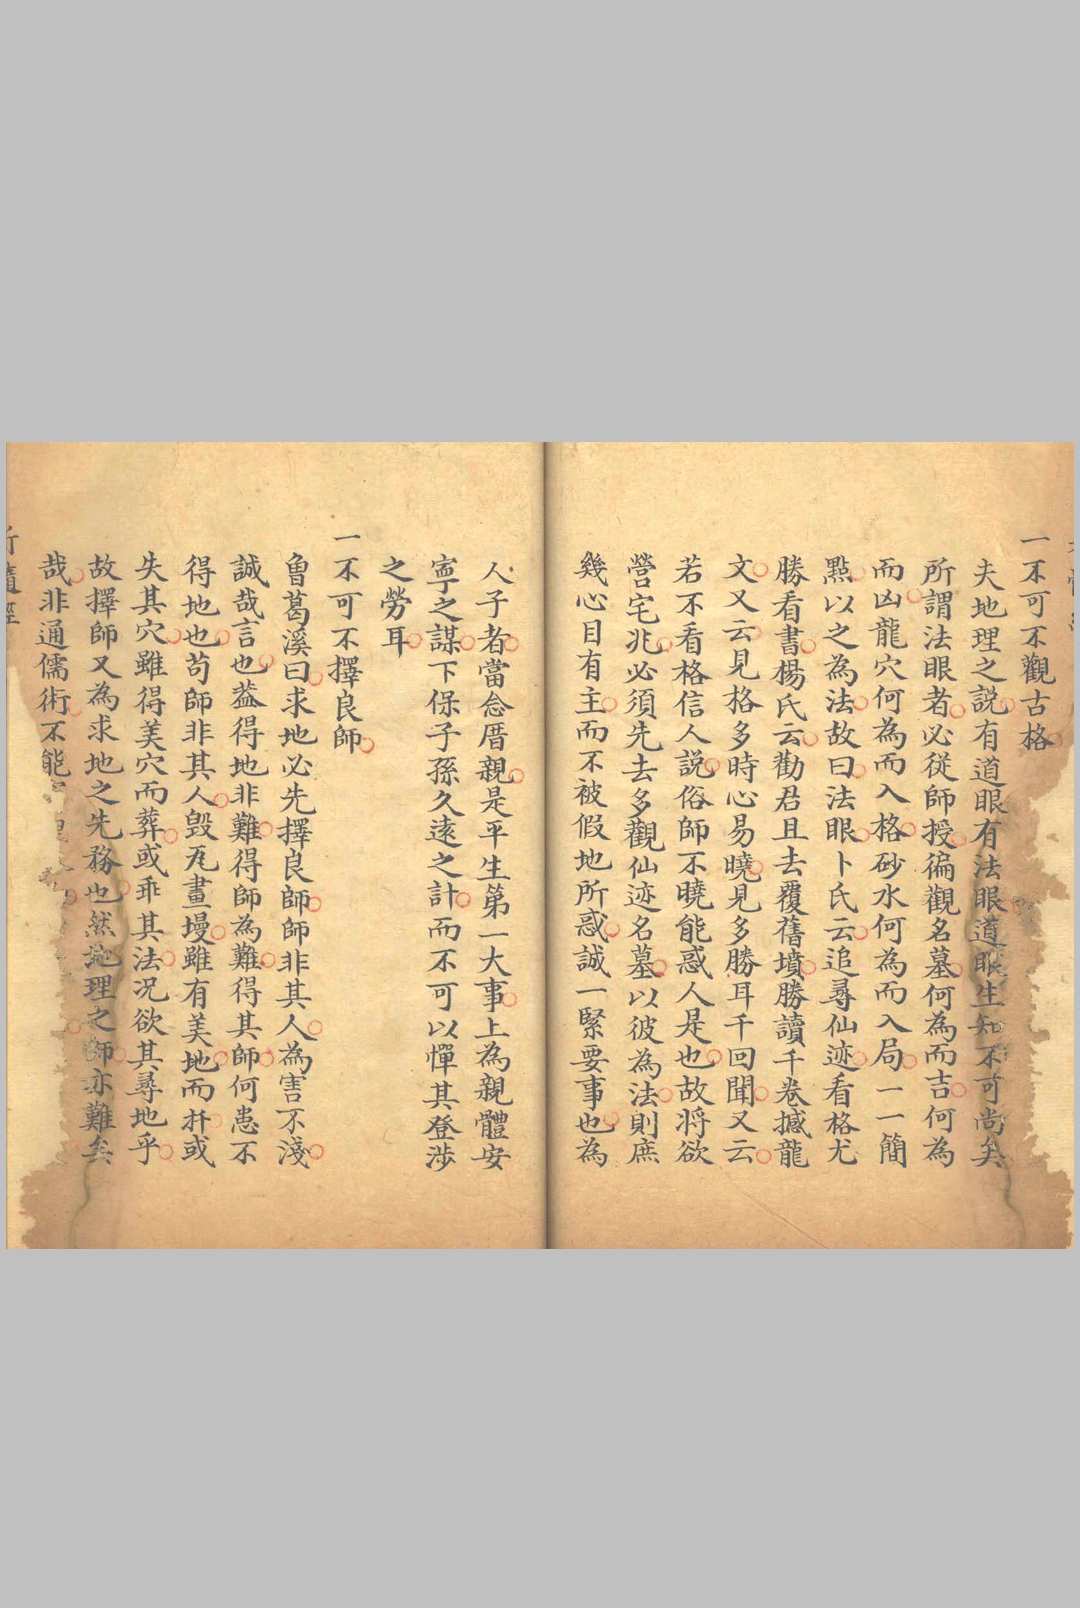 一不可不觀古格
夫地理之説有道眼有法眼道眼生知不可尚矣
所謂法眼者必從師授徧觀名墓何為而吉何為
而凶龍穴何為而入格砂水何為而入局一一簡
點以之為法故曰法眼卜氏云追尋仙迹看格尤
勝看書楊氏云勸君且去覆舊墳勝讀千卷撼龍
文又云見格多時心易曉見多勝耳千回聞又云
若不看格信人説俗師不曉能惑人是也故将欲
營宅兆必須先去多觀仙迹名墓以彼為法則庶
幾心目有主而不被假地所惑誠一緊要事也為
人子者當念厝親是平生第一大事上為親體安
寧之謀下保子孫久遠之計而不可以憚其登涉
之勞耳
一不可不擇良師
魯葛溪曰求地必先擇良師師非其人為害不淺
誠哉言也葢得地非難得師為難得其師何患不
得地也苟師非其人毁瓦畫墁雖有美地而𦵏或
失其穴雖得美穴而葬或乖其法况欲其尋地乎
故擇師又為求地之先務也然地理之師亦難矣
哉非通儒術不能